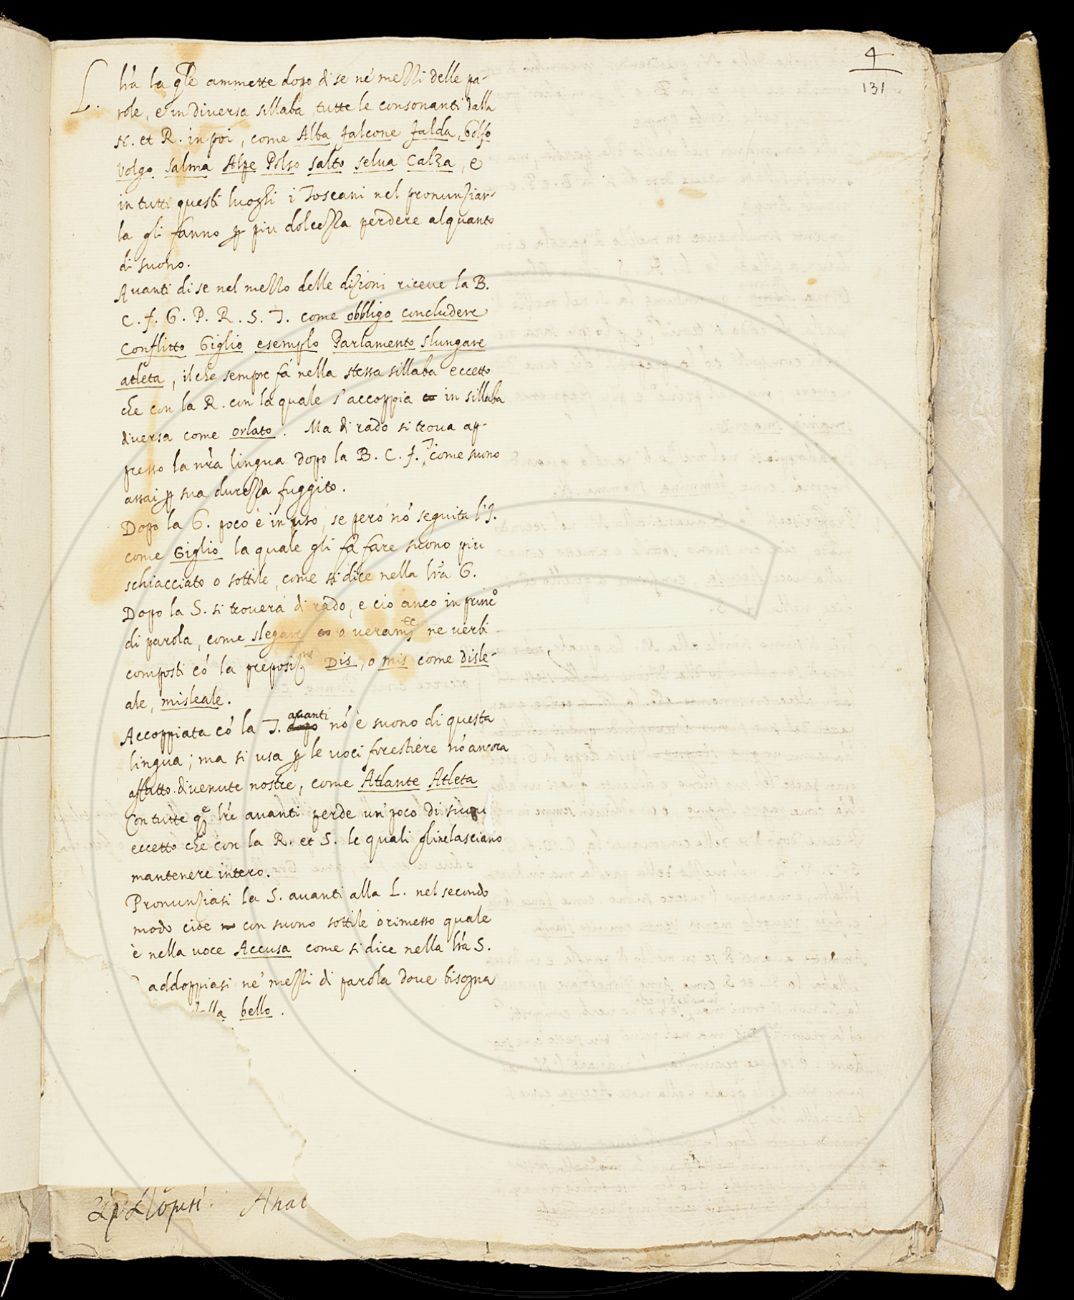 4
131
L. lr̃a la qle ammette dopo di se ne' mezzi delle pa-
role, e in diversa sillaba tutte le consonanti dalla
H. et R. in poi, come Alba falcone falda, Golfo
Volgo Salma Alpe Polso salto selua Calza, e
in tutti questi luoghi i Toscani nel pronunziar-
la gli fanno p più dolcezza perdere alquanto
di suono.
Auanti di se nel mezzo delle dizioni riceue la B.
C. f. G. P. R. S. T. come obbligo concludere
Conflitto Giglio esemplo Parlamento slungare
atleta, il che sempre fà nella stessa sillaba eccetto
che con la R. con la quale s'accoppia in sillaba
diuersa come orlato. Ma di rado si troua ap-
presso la nr̃a lingua dopo la B. C. f. T. come suono
assai p sua durezza fuggito.
Dopo la G. poco è in uso, se però nō seguita l'I.
come Giglio la quale gli fà fare suono più
schiacciato o sottile, come si dice nella lr̃a G.
Dopo la S. si trouerà di rado, e ciò anco in princº
di parola, come slegare o ueramte ne uerbi
composti cō la preposizne Dis, o mis come disle-
ale, misleale.
Accoppiata cō la T. auanti nō è suono di questa
lingua; ma si usa p le uoci forestiere nō ancora
affatto diuenute nostre, come Atlante Atleta
Con tutte qe lr̃e auanti perde un poco di suono
eccetto che con la R. et S. le quali gliele lasciano
mantenere intero.
Pronunziasi la S. auanti alla L. nel secondo
modo cioè con suono sottile o rimesso quale
è nella uoce Accusa come si dice nella lr̃a S.
addoppiasi ne' mezzi di parola doue bisogna
bello.